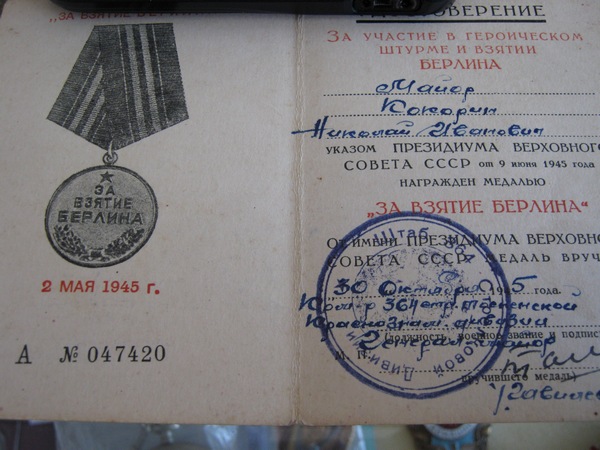 "ЗА ВЗЯТИЕ БЕРЛИНА"
ЗА
ВЗЯТИЕ
БЕРЛИНА
2 МАЯ 1945 г.
А № 047420
УДОСТОВЕРЕНИЕ
ЗА УЧАСТИЕ В ГЕРОИЧЕСКОМ
ШТУРМЕ И ВЗЯТИИ
БЕРЛИНА
Майор
Кокорин
Николай Иванович
УКАЗОМ ПРЕЗИДИУМА ВЕРХОВНОГО
СОВЕТА СССР от 9 июня 1945 года
НАГРАЖДЕН МЕДАЛЬЮ
„ЗА ВЗЯТИЕ БЕРЛИНА“
ОТ ИМЕНИ ПРЕЗИДИУМА ВЕРХОВНО
СОВЕТА СССР МЕДАЛЬ ВРУЧ
"30" Октября 1945 года.
Ком-р 364 стр. Тосненской
Краснознам. дивизии
Генерал-майор
(должность, военное звание и подпись
М. П.
вручившего медаль)
Штаб 364